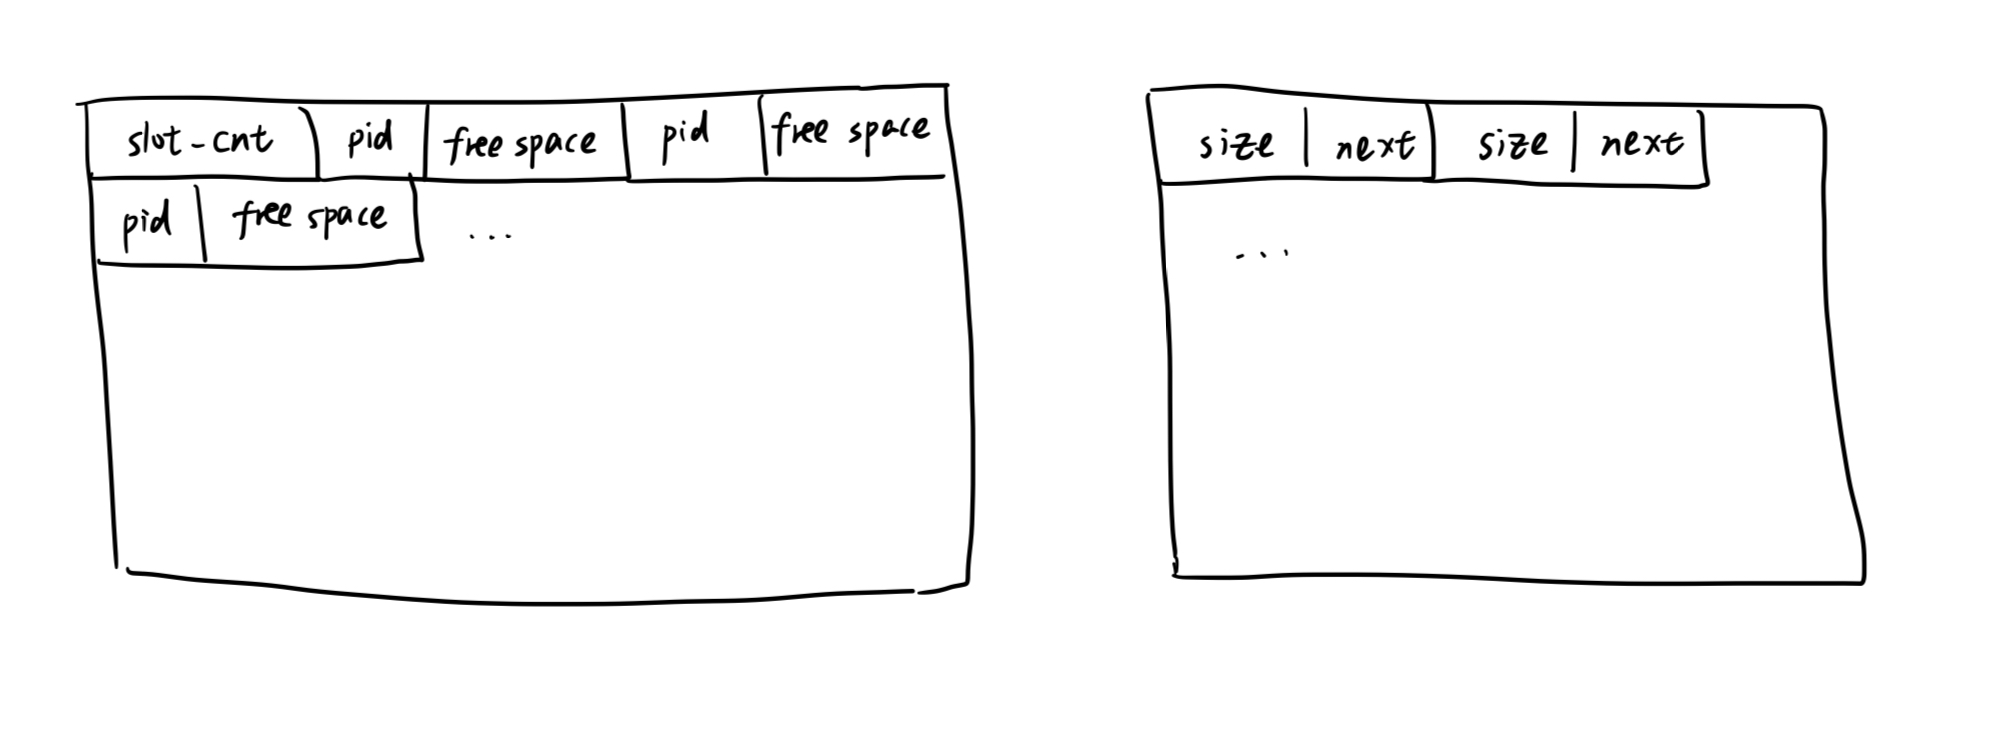 slot-cnt pid free space pid free space
pid free space ...
size next size next
...